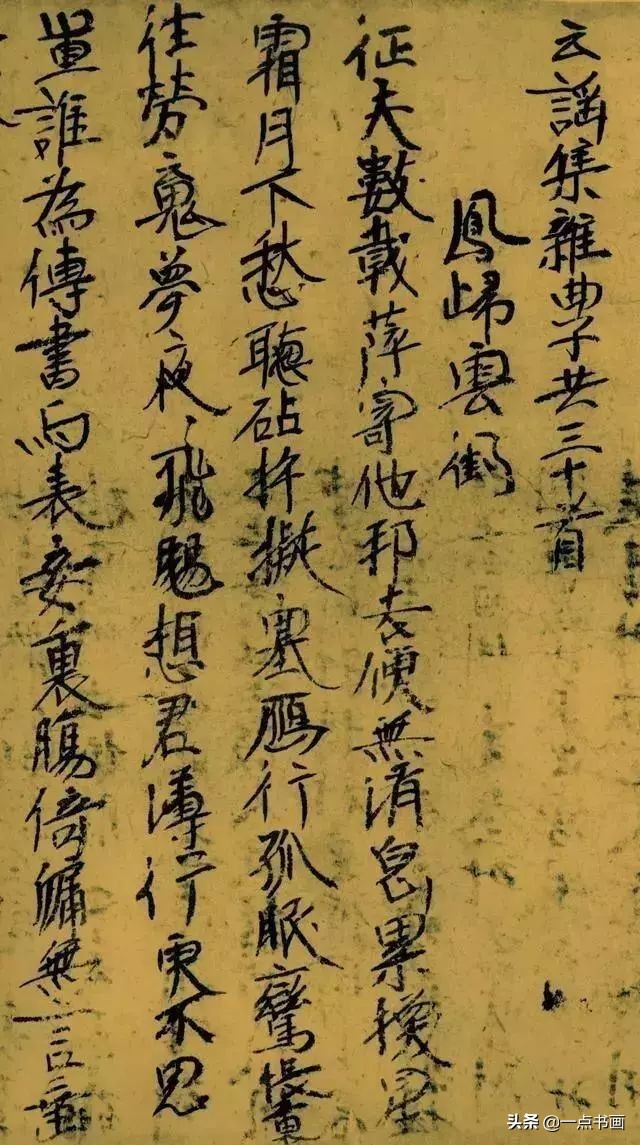 云謠集雜曲子共三十首
鳳歸雲
征夫數載萍寄他邦去便無消息累換星
霜月下愁聽砧杵擬塞鴈行孤眠鸞帳裏
往勞魂夢夜〻飛颺想君薄行更不思
量誰為傳書与表妾衷腸倚牖無言垂
头条 @一点书画